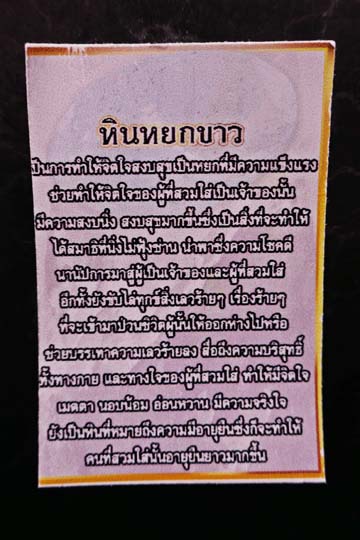 หินหยกขาว
เป็นการทำให้จิตใจสงบสุขเป็นหยกที่มีความแข็งแรง
ช่วยทำให้จิตใจของผู้ที่สวมใส่เป็นเจ้าของนั้น
มีความสงบนิ่ง สงบสุขมากขึ้นซึ่งเป็นสิ่งที่จะทำให้
ได้สมาธิที่นิ่งไม่ฟุ้งซ่าน นำพาซึ่งความโชคดี
นานัปการมาสู่ผู้เป็นเจ้าของและผู้ที่สวมใส่
อีกทั้งยังขับไล่ทุกข์สิ่งเลวร้ายๆ เรื่องร้ายๆ
ที่จะเข้ามาป่วนชีวิตผู้นั้นให้ออกห่างไปหรือ
ช่วยบรรเทาความเลวร้ายลง สื่อถึงความบริสุทธิ์
ทั้งทางกาย และทางใจของผู้ที่สวมใส่ ทำให้มีจิตใจ
เมตตา นอบน้อม อ่อนหวาน มีความจริงใจ
ยังเป็นหินที่หมายถึงความมีอายุยืนซึ่งก็จะทำให้
คนที่สวมใส่นั้นอายุยืนยาวมากขึ้น